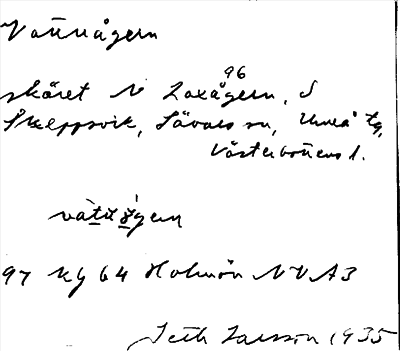 Vattuågern
96
skäret N Laxågern, S
Skeppsvik, Sävars sn, Umeå tg,
Västerbottens l.
97 kg 64 Holmön NV A3
Seth Larsson 1935